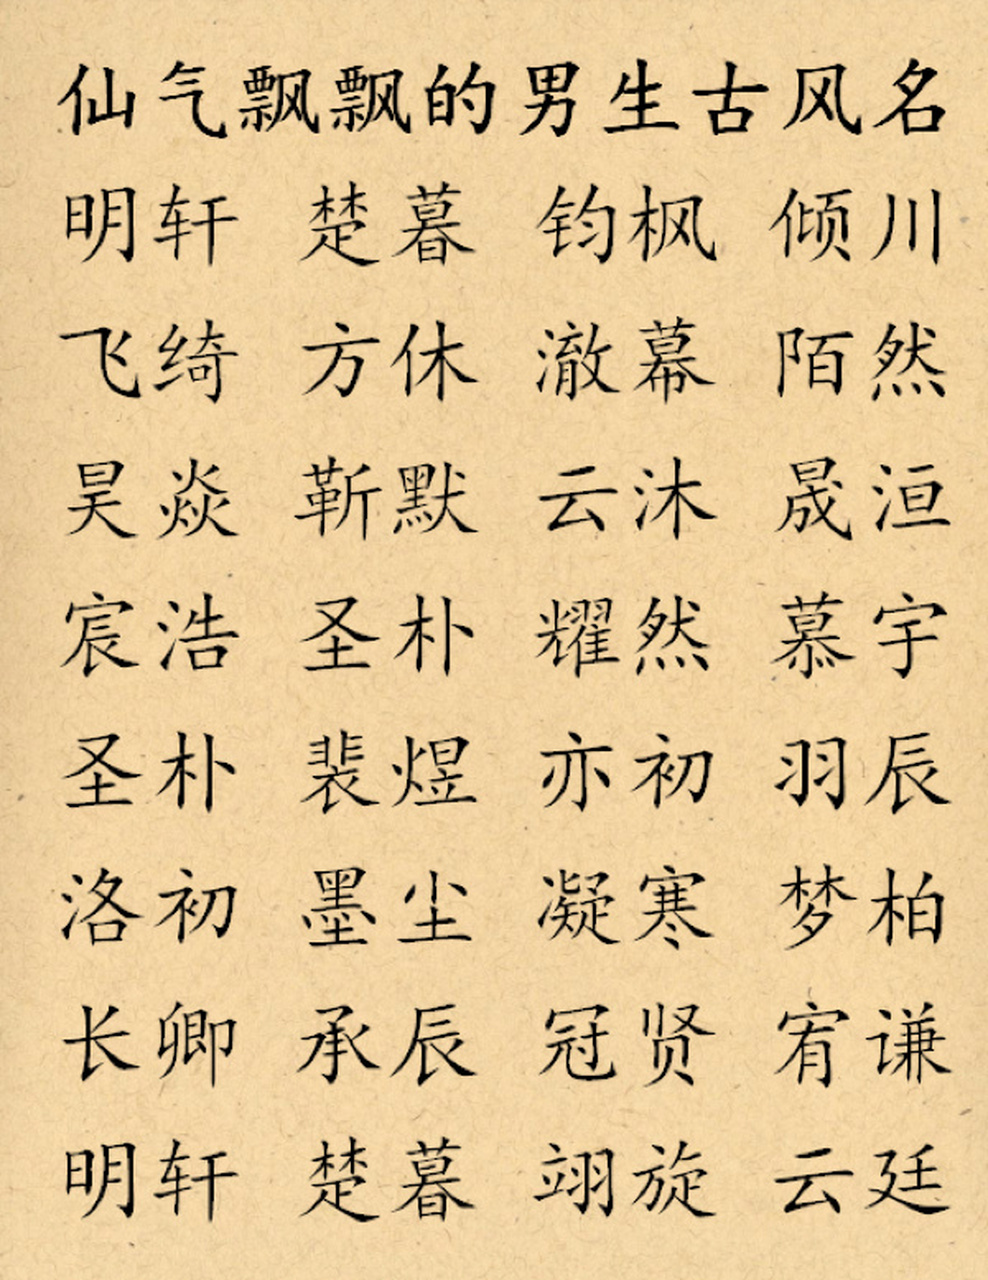 仙气飘飘的男生古风名
明轩 楚暮 钧枫 倾川
飞绮 方休 澈幕 陌然
昊焱 靳默 云沐 晟洹
宸浩 圣朴 耀然 慕宇
圣朴 裴煜 亦初 羽辰
洛初 墨尘 凝寒 梦柏
长卿 承辰 冠贤 宥谦
明轩 楚暮 翊旋 云廷